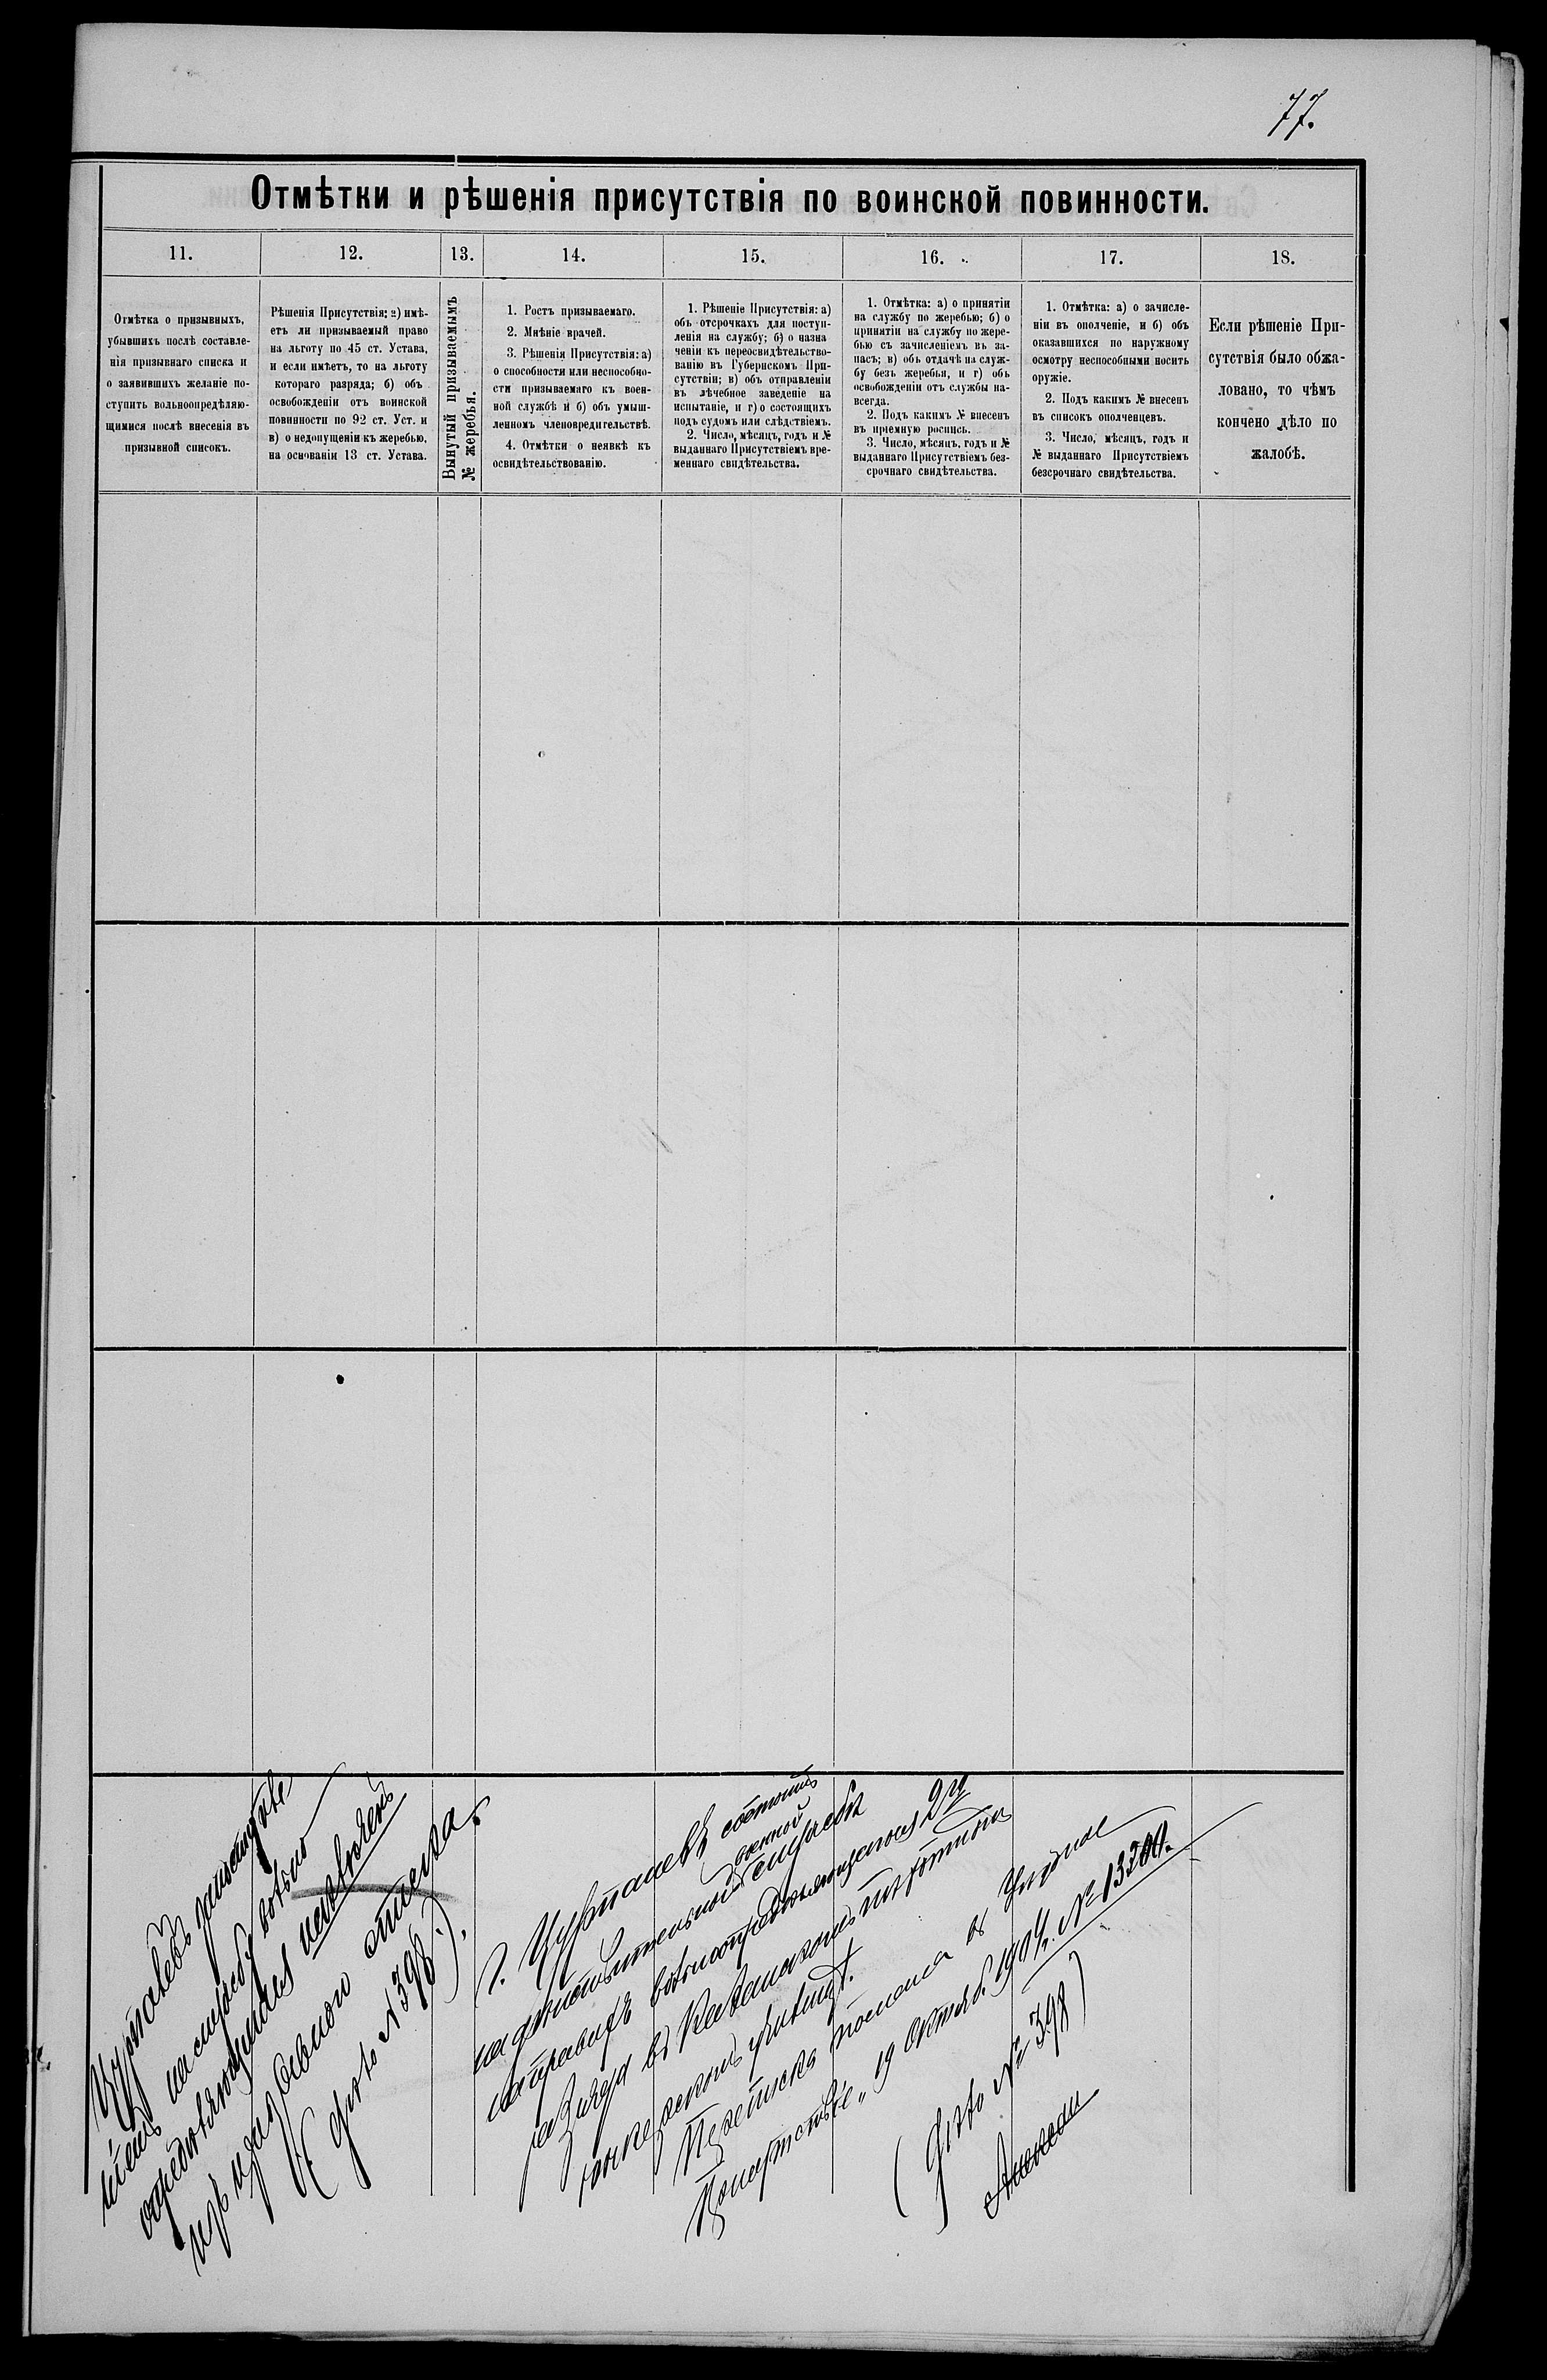 77.
Отмѣтки и рѣшенія присутствія по воинской повинности.
11.
12.
13.
14.
15.
16.
17.
18.
Отмѣтка о призывныхъ,
убывшихъ послѣ составле-
нія призывнаго списка и
о заявившихъ желаніе по-
ступить вольноопредѣляю-
щимися послѣ внесенія въ
призывной списокъ.
Рѣшенія Присутствія: а) имѣ-
етъ ли призываемый право
на льготу по 45 ст. Устава,
и если имѣетъ, то на льготу
котораго разряда; б) объ
освобожденіи отъ воинской
повинности по 92 ст. Уст. и
в) о недопущеніи къ жеребью,
на основаніи 13 ст. Устава.
Вынутый призываемымъ
№ жеребья.
1. Ростъ призываемаго.
2. Мнѣніе врачей.
3. Рѣшенія Присутствія: а)
о способности или неспособно-
сти призываемаго къ воен-
ной службѣ и б) объ умыш-
ленномъ членовредительствѣ.
4. Отмѣтки о неявкѣ къ
освидѣтельствованію.
1. Рѣшеніе Присутствія: а)
объ отсрочкахъ для поступ-
ленія на службу; б) о назна
ченіи къ переосвидѣтельство-
ванію въ Губернскомъ При-
сутствіи; в) объ отправленіи
въ лѣчебное заведеніе на
испытаніе, и г) о состоящихъ
подъ судомъ или слѣдствіемъ.
2. Число, мѣсяцъ, годъ и №
выданнаго Присутствіемъ вре-
меннаго свидѣтельства.
1. Отмѣтка: а) о принятіи
на службу по жеребью; б) о
принятіи на службу по жере-
бью съ зачисленіемъ въ за-
пасъ; в) объ отдачѣ на служ-
бу безъ жеребья, и г) объ
освобожденіи отъ службы на-
всегда.
2. Подъ какимъ № внесенъ
въ пріемную роспись.
3. Число, мѣсяцъ, годъ и №
выданнаго Присутствіемъ без-
срочнаго свидѣтельства.
1. Отмѣтка: а) о зачисле-
ніи въ ополченіе, и б) объ
оказавшихся по наружному
осмотру неспособными носить
оружіе.
2. Подъ какимъ № внесенъ
въ списокъ ополченцевъ.
3. Число, мѣсяцъ, годъ и
№ выданнаго Присутствіемъ
безсрочнаго свидѣтельства.
Если рѣшеніе При-
сутствія было обжа-
ловано, то чѣмъ
кончено дѣло по
жалобѣ.
на службу вольно
опредѣляющимся исключенъ
изъ призывнаго списка
(дѣло № 398).
состоитъ
на дѣйствительной военной службѣ
на правахъ вольноопредѣляющагося 2го
разряда въ
юнкерскомъ училищѣ.
Переписка
19 Октября 1904 г. № 13200.
(Дѣло № 398)